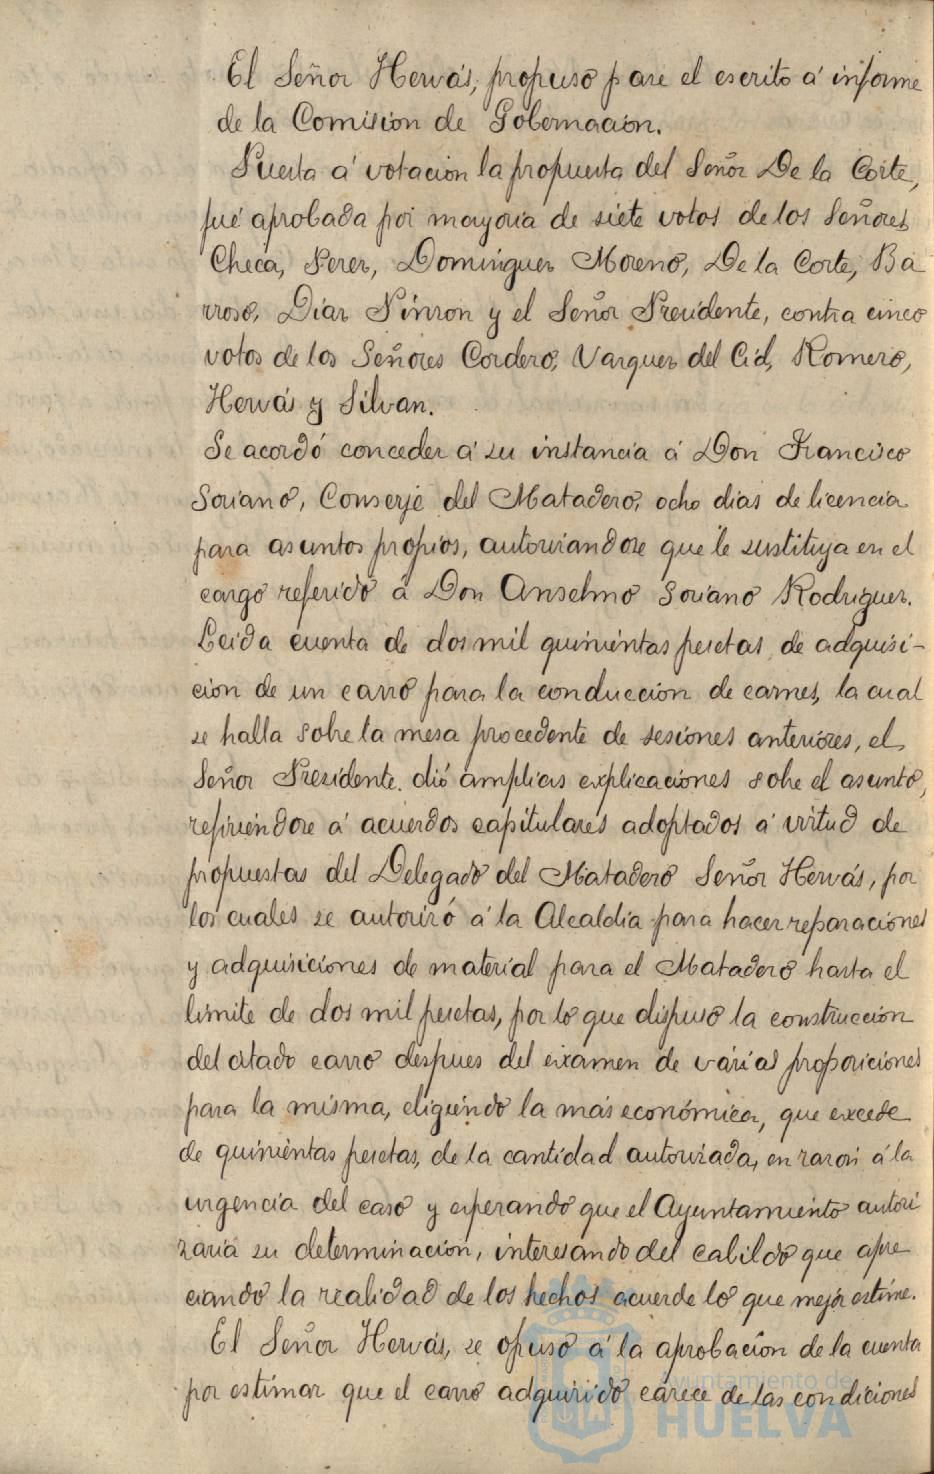 El Señor Hervás, propuso pase el escrito á informe
de la Comision de Gobernacion.
Puesta á votacion la propuesta del Señor De la Corte,
fué aprobada por mayoria de siete votos de los Señores
Checa, Perez, Dominguez Moreno, De la Corte, Ba
rroso, Diaz Pinzon y el Señor Presidente, contra cinco
votos de los Señores Cordero, Vazquez del Cid, Romero,
Hervás y Silvan.
Se acordó conceder á su instancia á Don Francisco
Soriano, Conserje del Matadero, ocho dias de licencia
para asuntos propios, autorizandose que le sustituya en el
cargo referido á Don Anselmo Soriano Rodriguez.
Leida cuenta de dos mil quinientas pesetas, de adquisi-
cion de un carro para la conduccion de carnes, la cual
se halla sobre la mesa procedente de sesiones anteriores, el
Señor Presidente dió amplias explicaciones sobre el asunto,
refiriéndose á acuerdos capitulares adoptados á virtud de
propuestas del Delegado del Matadero Señor Hervás, por
los cuales se autorizó á la Alcaldia para hacer reparaciones
y adquisiciones de material para el Matadero hasta el
limite de dos mil pesetas, por lo que dispuso la construccion
del citado carro despues del examen de várias proposiciones
para la misma, eligiendo la más económica, que excede
de quinientas pesetas, de la cantidad autorizada, en razon á la
urgencia del caso y esperando que el Ayuntamiento autori
zaria su determinacion, interesando del cabildo que apre
ciando la realidad de los hechos acuerde lo que mejor estime.
El Señor Hervás, se opuso á la aprobacion de la cuenta
por estimar que el carro adquirido carece de las condiciones
Ayuntamiento de
HUELVA